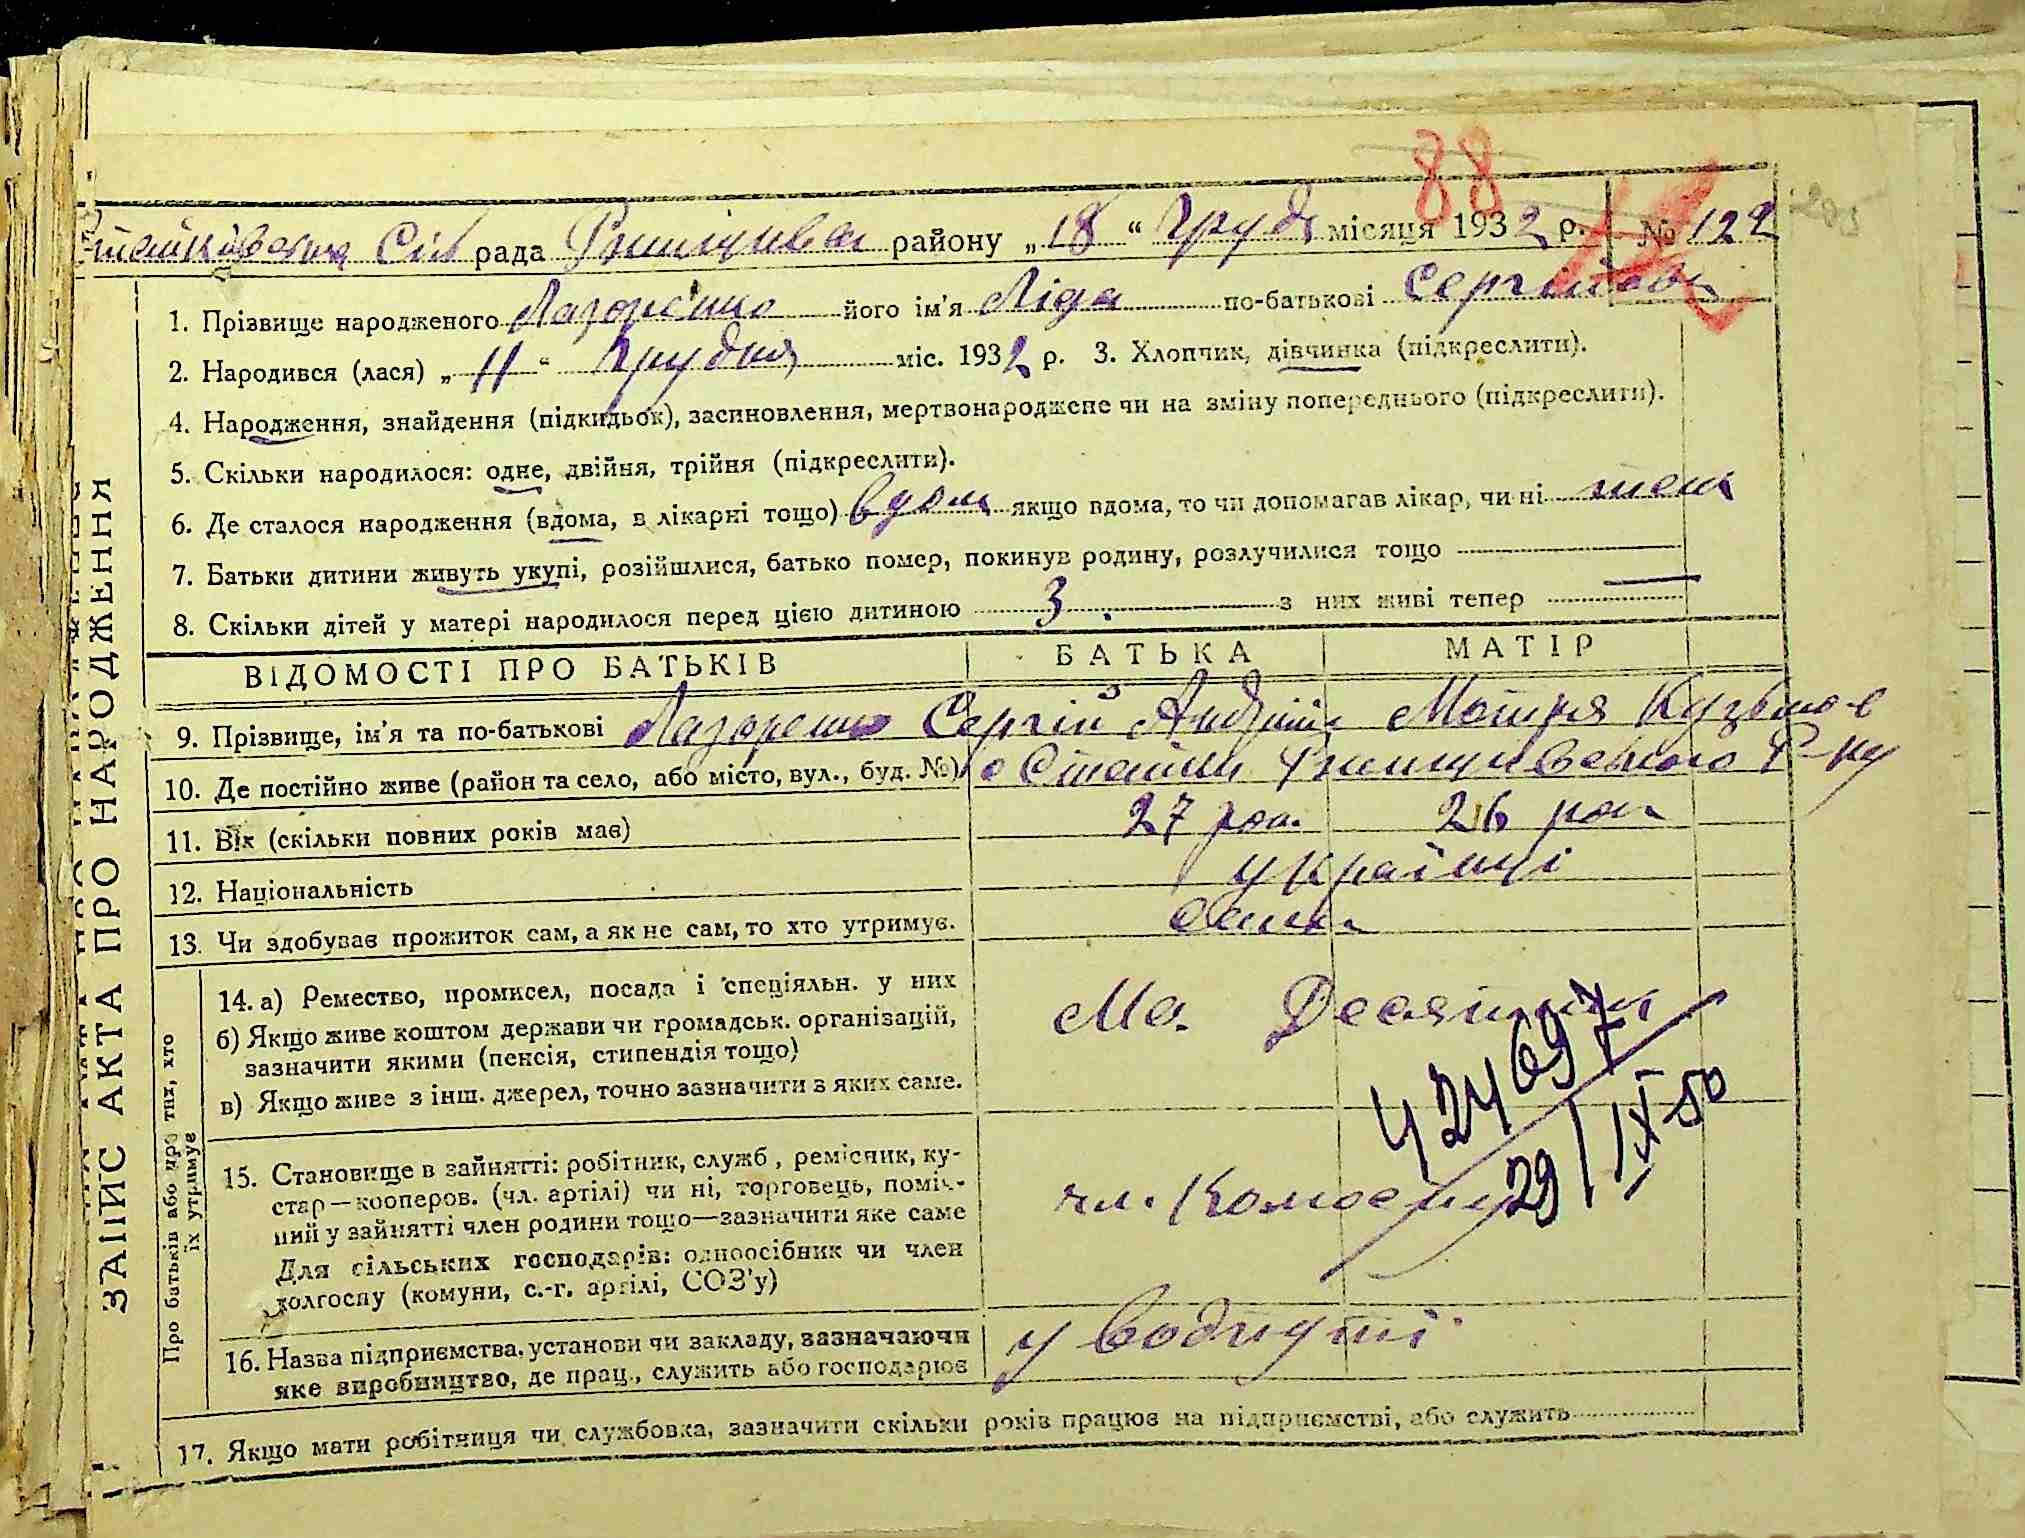 88
Сіл рада района „18“ Груд місяця 1932 р. № 122
1. Прізвище народженого Лазоренко його ім'я Ліда по-батькові Сергіївн
2. Народився (лася) „11“ Грудня міс. 1932 р. 3. Хлопчик, дівчинка (підкреслити).
4. Народження, знайдення (підкидьок), засиновлення, мертвонароджене чи на зміну попереднього (підкреслити).
5. Скільки народилося: одне, двійня, трійня (підкреслити).
6. Де сталося народження (вдома, в лікарні тощо) вдом якщо вдома, то чи допомагав лікар, чи ні
7. Батьки дитини живуть укупі, розійшлися, батько помер, покинув родину, розлучилися тощо
8. Скільки дітей у матері народилося перед цією дитиною 3 з них живі тепер —
ВІДОМОСТІ ПРО БАТЬКІВ БАТЬКА МАТІР
9. Прізвище, ім'я та по-батькові Лазоренко Сергій Андрій Мотря Кузьмов
10. Де постійно живе (район та село, або місто, вул., буд. №) с Стайки Р-ну
11. Вік (скільки повних років має) 27 рок. 26 рок
12. Національність українці
13. Чи здобував прожиток сам, а як не сам, то хто утримує. сами
14. а) Ремество, промисел, посада і спеціяльн. у них
б) Якщо живе коштом держави чи громадськ. організацій,
зазначити якими (пенсія, стипендія тощо)
в) Якщо живе з інш. джерел, точно зазначити з яких саме.
424697
29/IX 50
15. Становище в зайнятті: робітник, служб., ремісник, ку-
стар—кооперов. (чл. артілі) чи ні, торговець, поміч-
ний у зайнятті член родини тощо—зазначити яке саме
Для сільських господарів: одноосібник чи член
колгоспу (комуни, с.-г. артілі, СОЗ'у)
чл.
16. Назва підприємства, установи чи закладу, зазначаючи
яке виробництво, де прац., служить або господарює
17. Якщо мати робітниця чи службовка, зазначити скільки років працює на підприємстві, або служить
ЗАПИС АКТА ПРО НАРОДЖЕННЯ
Про батьків або про тих, хто
їх утримує